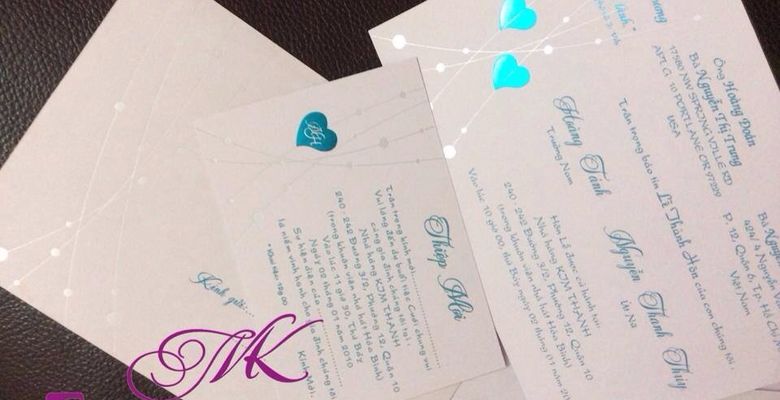 Kính gửi:...
MK
Thiệp Mời
Trân trọng kính mời:
Vui lòng đến dự buổi tiệc Cưới chung vui
cùng gia đình chúng tôi tại:
Nhà hàng KIM THANH
240 - 242 Đường 3/2, Phường 12, Quận 10
(trong khuôn viên nhà hát Hòa Bình)
Vào lúc 11 giờ 30, Thứ Bảy
Ngày 02 tháng 01 năm 2010
Sự hiện diện của
là niềm vinh hạnh cho gia đình chúng tôi.
Kính Mời,
Ông Hoàng Đoàn
Bà Nguyễn Thị Trung
17580 NW SPRING VILLE RD
APt. G - 10 PORTLANE OR 97299
USA
424/4
P. 12, Quận 6, Tp.
Việt Nam
Trân trọng báo tin Lễ Thành Hôn của con chúng tôi :
Hoàng Tánh
Trưởng Nam
Nguyễn Thanh Thủy
Út Nữ
Hôn Lễ được cử hành tại:
Nhà hàng KIM THANH
240 - 242 Đường 3/2, Phường 12, Quận 10
(trong khuôn viên nhà hát Hòa Bình)
Vào lúc 10 giờ 00, thứ Bảy ngày